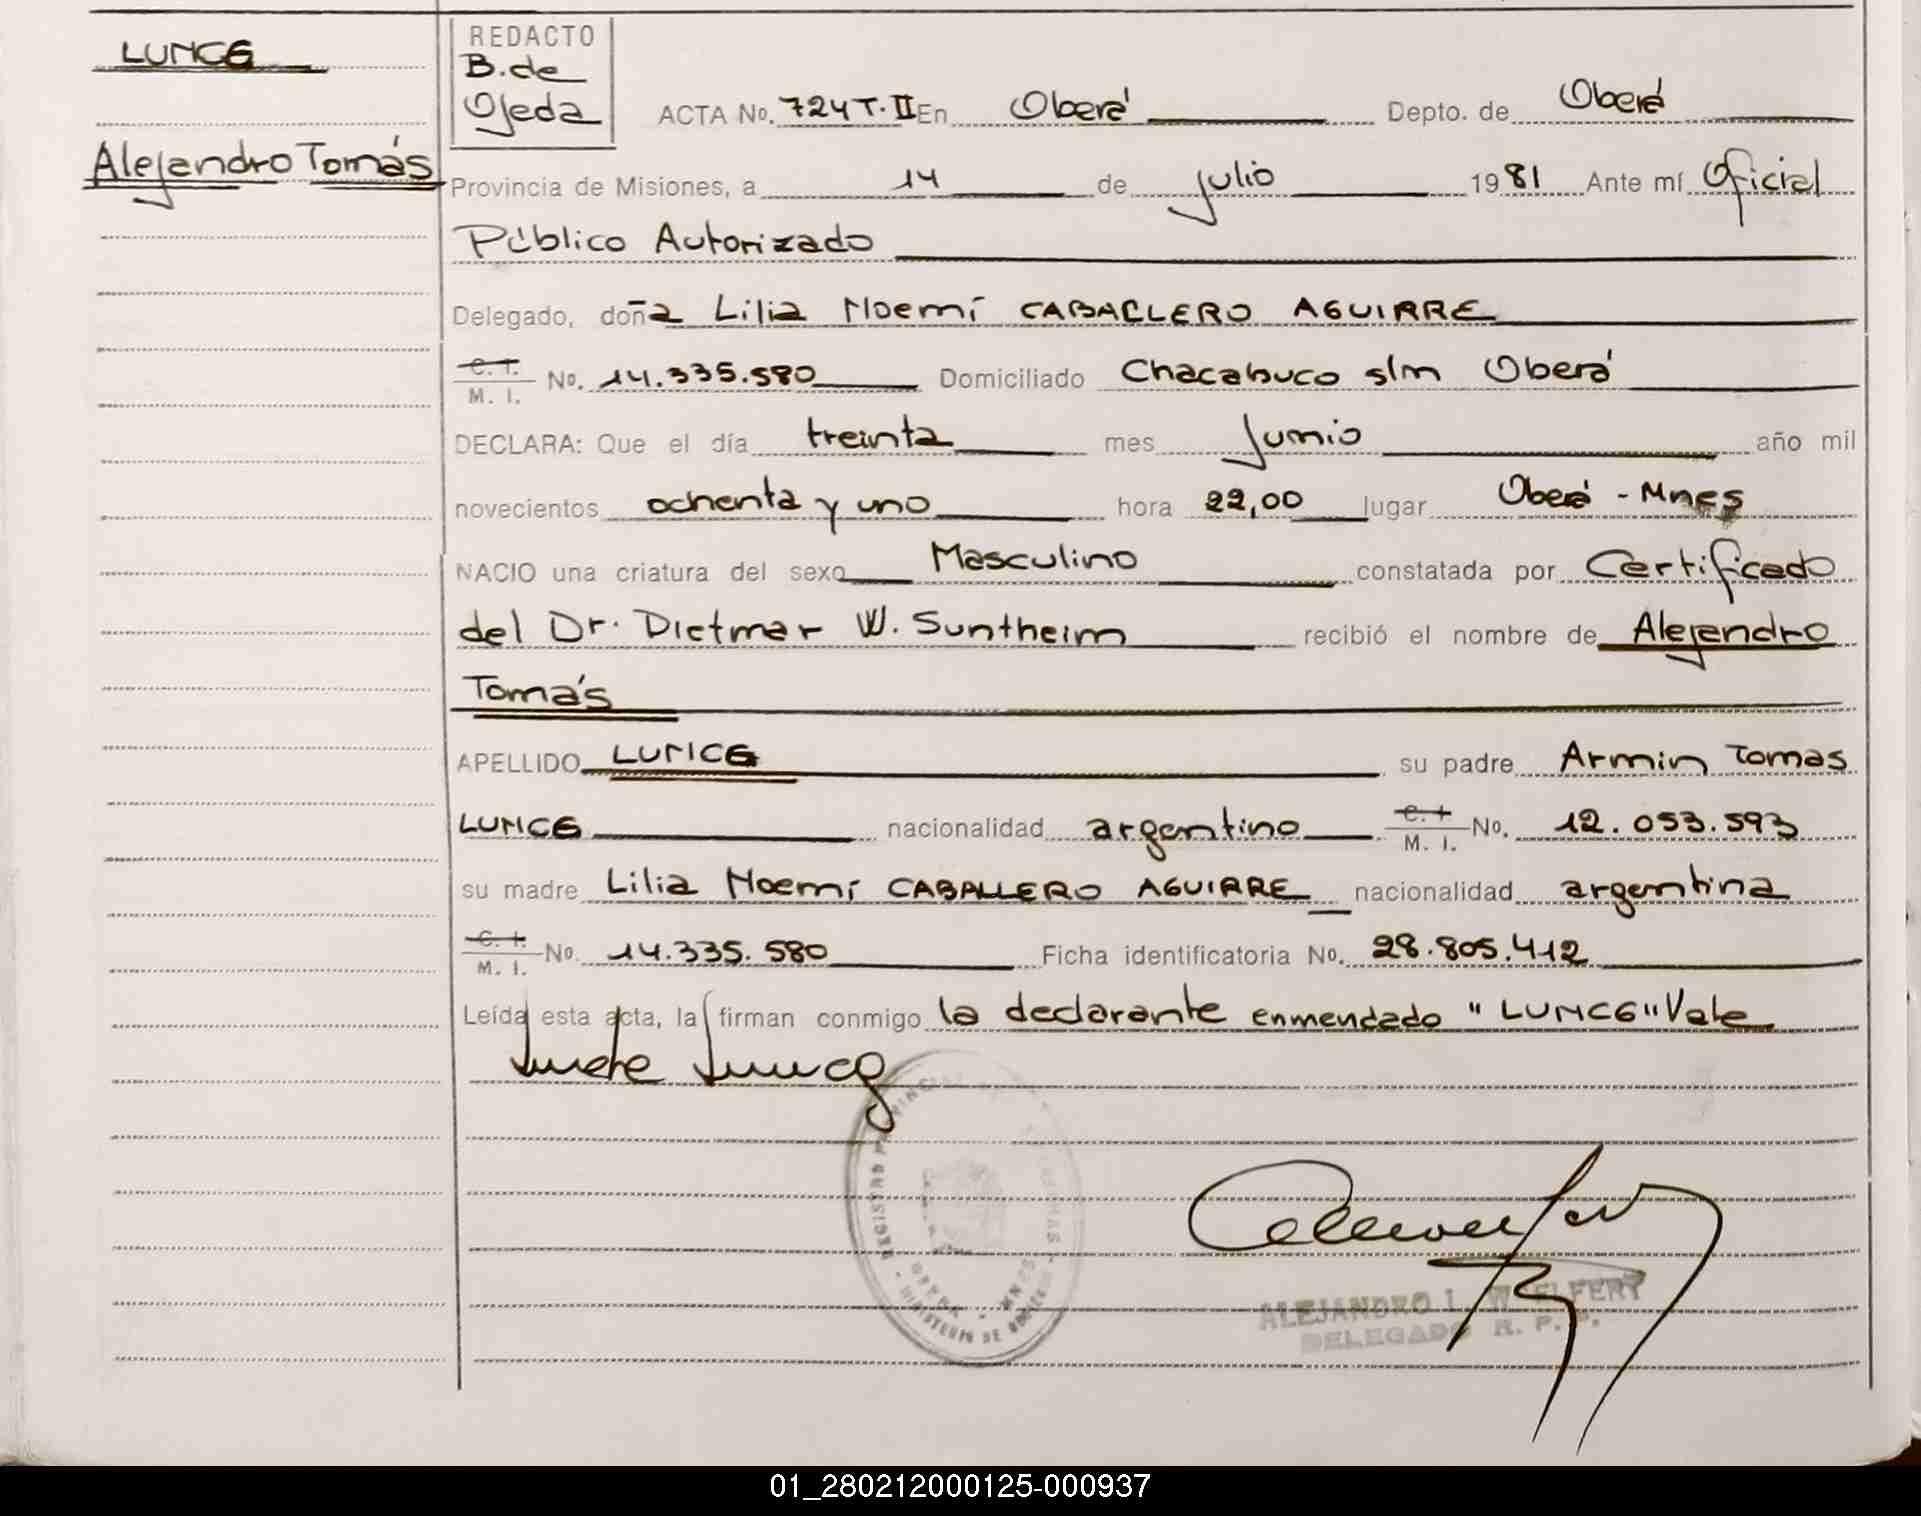 LUNCG
Alejandro Tomás
REDACTO
B. de
Ojeda
ACTA No. 724 T. II En Oberá Depto. de Oberá
Provincia de Misiones, a 14 de julio 1981 Ante mí Oficial
Público Autorizado
Delegado, doña Lilia Noemí CABALLERO AGUIRRE
C. I. M. I. No. 14.335.580 Domiciliado Chacabuco s/n Oberá
DECLARA: Que el día treinta mes junio año mil
novecientos ochenta y uno hora 22,00 lugar Oberá - Mnes
NACIO una criatura del sexo Masculino constatada por Certificado
del Dr. Dietmar W. Suntheim recibió el nombre de Alejandro
Tomás
APELLIDO LUNCG su padre Armin Tomas
LUNCG nacionalidad argentino C. I. M. I. No. 12.053.593
su madre Lilia Noemí CABALLERO AGUIRRE nacionalidad argentina
C. I. M. I. No. 14.335.580 Ficha identificatoria No. 28.805.412
Leída esta acta, la firman conmigo la declarante enmendado "LUNCG" Vale
ALEJANDRO I. W. ELFERT
DELEGADO R. P. P.
01_280212000125-000937